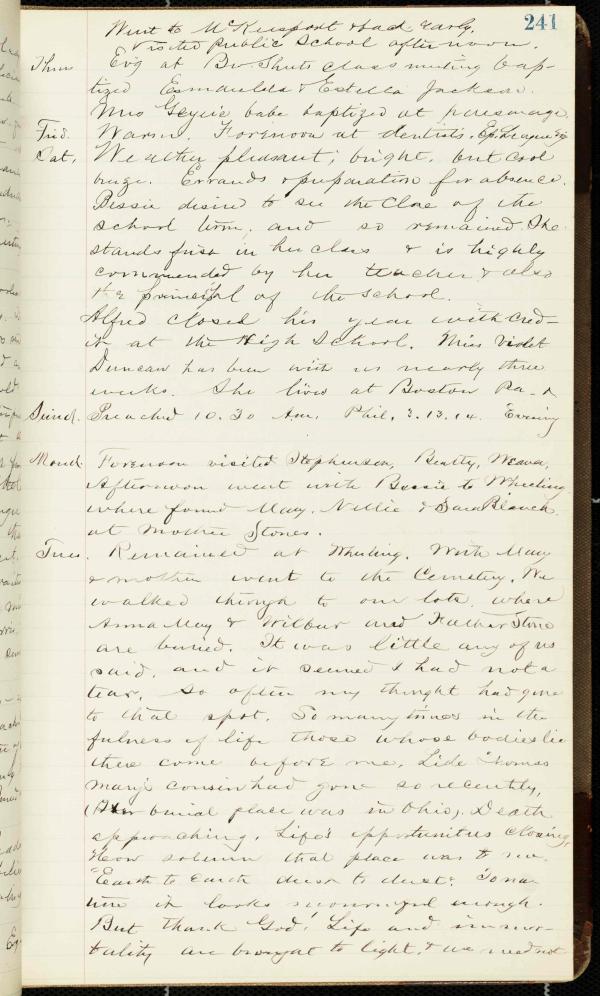 241
Went to McKeesport & back early.
Visited public School afternoon.
Thurs Ev'g at Bro Shutts class meeting Bap-
tized Esmaulda & Estella Jackson.
Mrs babe baptized at parsonage.
Frid. Warm. Forenoon at dentists. Ep. League Ev'g
Sat, Weather pleasant; bright, but cool
Errands & preparation for absence.
Bessie desired to see the Close of the
school term, and so remained. She
stands first in her class & is highly
commended by her teacher & also
the principal of the School.
Alfred closed his year with cred-
it at the High School. Miss Violet
Duncan has been with us nearly three
weeks. She lives at Boston Pa.
Sund. Preached 10.30 Am. Phil, 3.13.14. Evening
Mond. Forenoon visited Stephenson, Beatty, Weaver,
Afternoon went with Bessie to Wheeling
where found Mary, Nellie & Sara Blanch
at Mother Stones.
Tues. Remained at Wheeling. With Mary
& mother went to the Cemetery. We
walked through to our lots, where
Anna Mary & Wilbur and Father Stone
are buried. It was little any of us
said, and it seemed I had not a
tear, so often my thought had gone
to that spot. So many times in the
fulness of life those whose bodies lie
there come before me. Lide Thomas
Mary's cousin had gone so recently,
(Her burial place was in Ohio). Death
approaching, Life's opportunities closing,
How solemn that place was to me.
"Earth to Earth dust to dust". To na-
ture it looks mournful enough.
But thank God! Life and immor-
tality are brought to light, & we need not